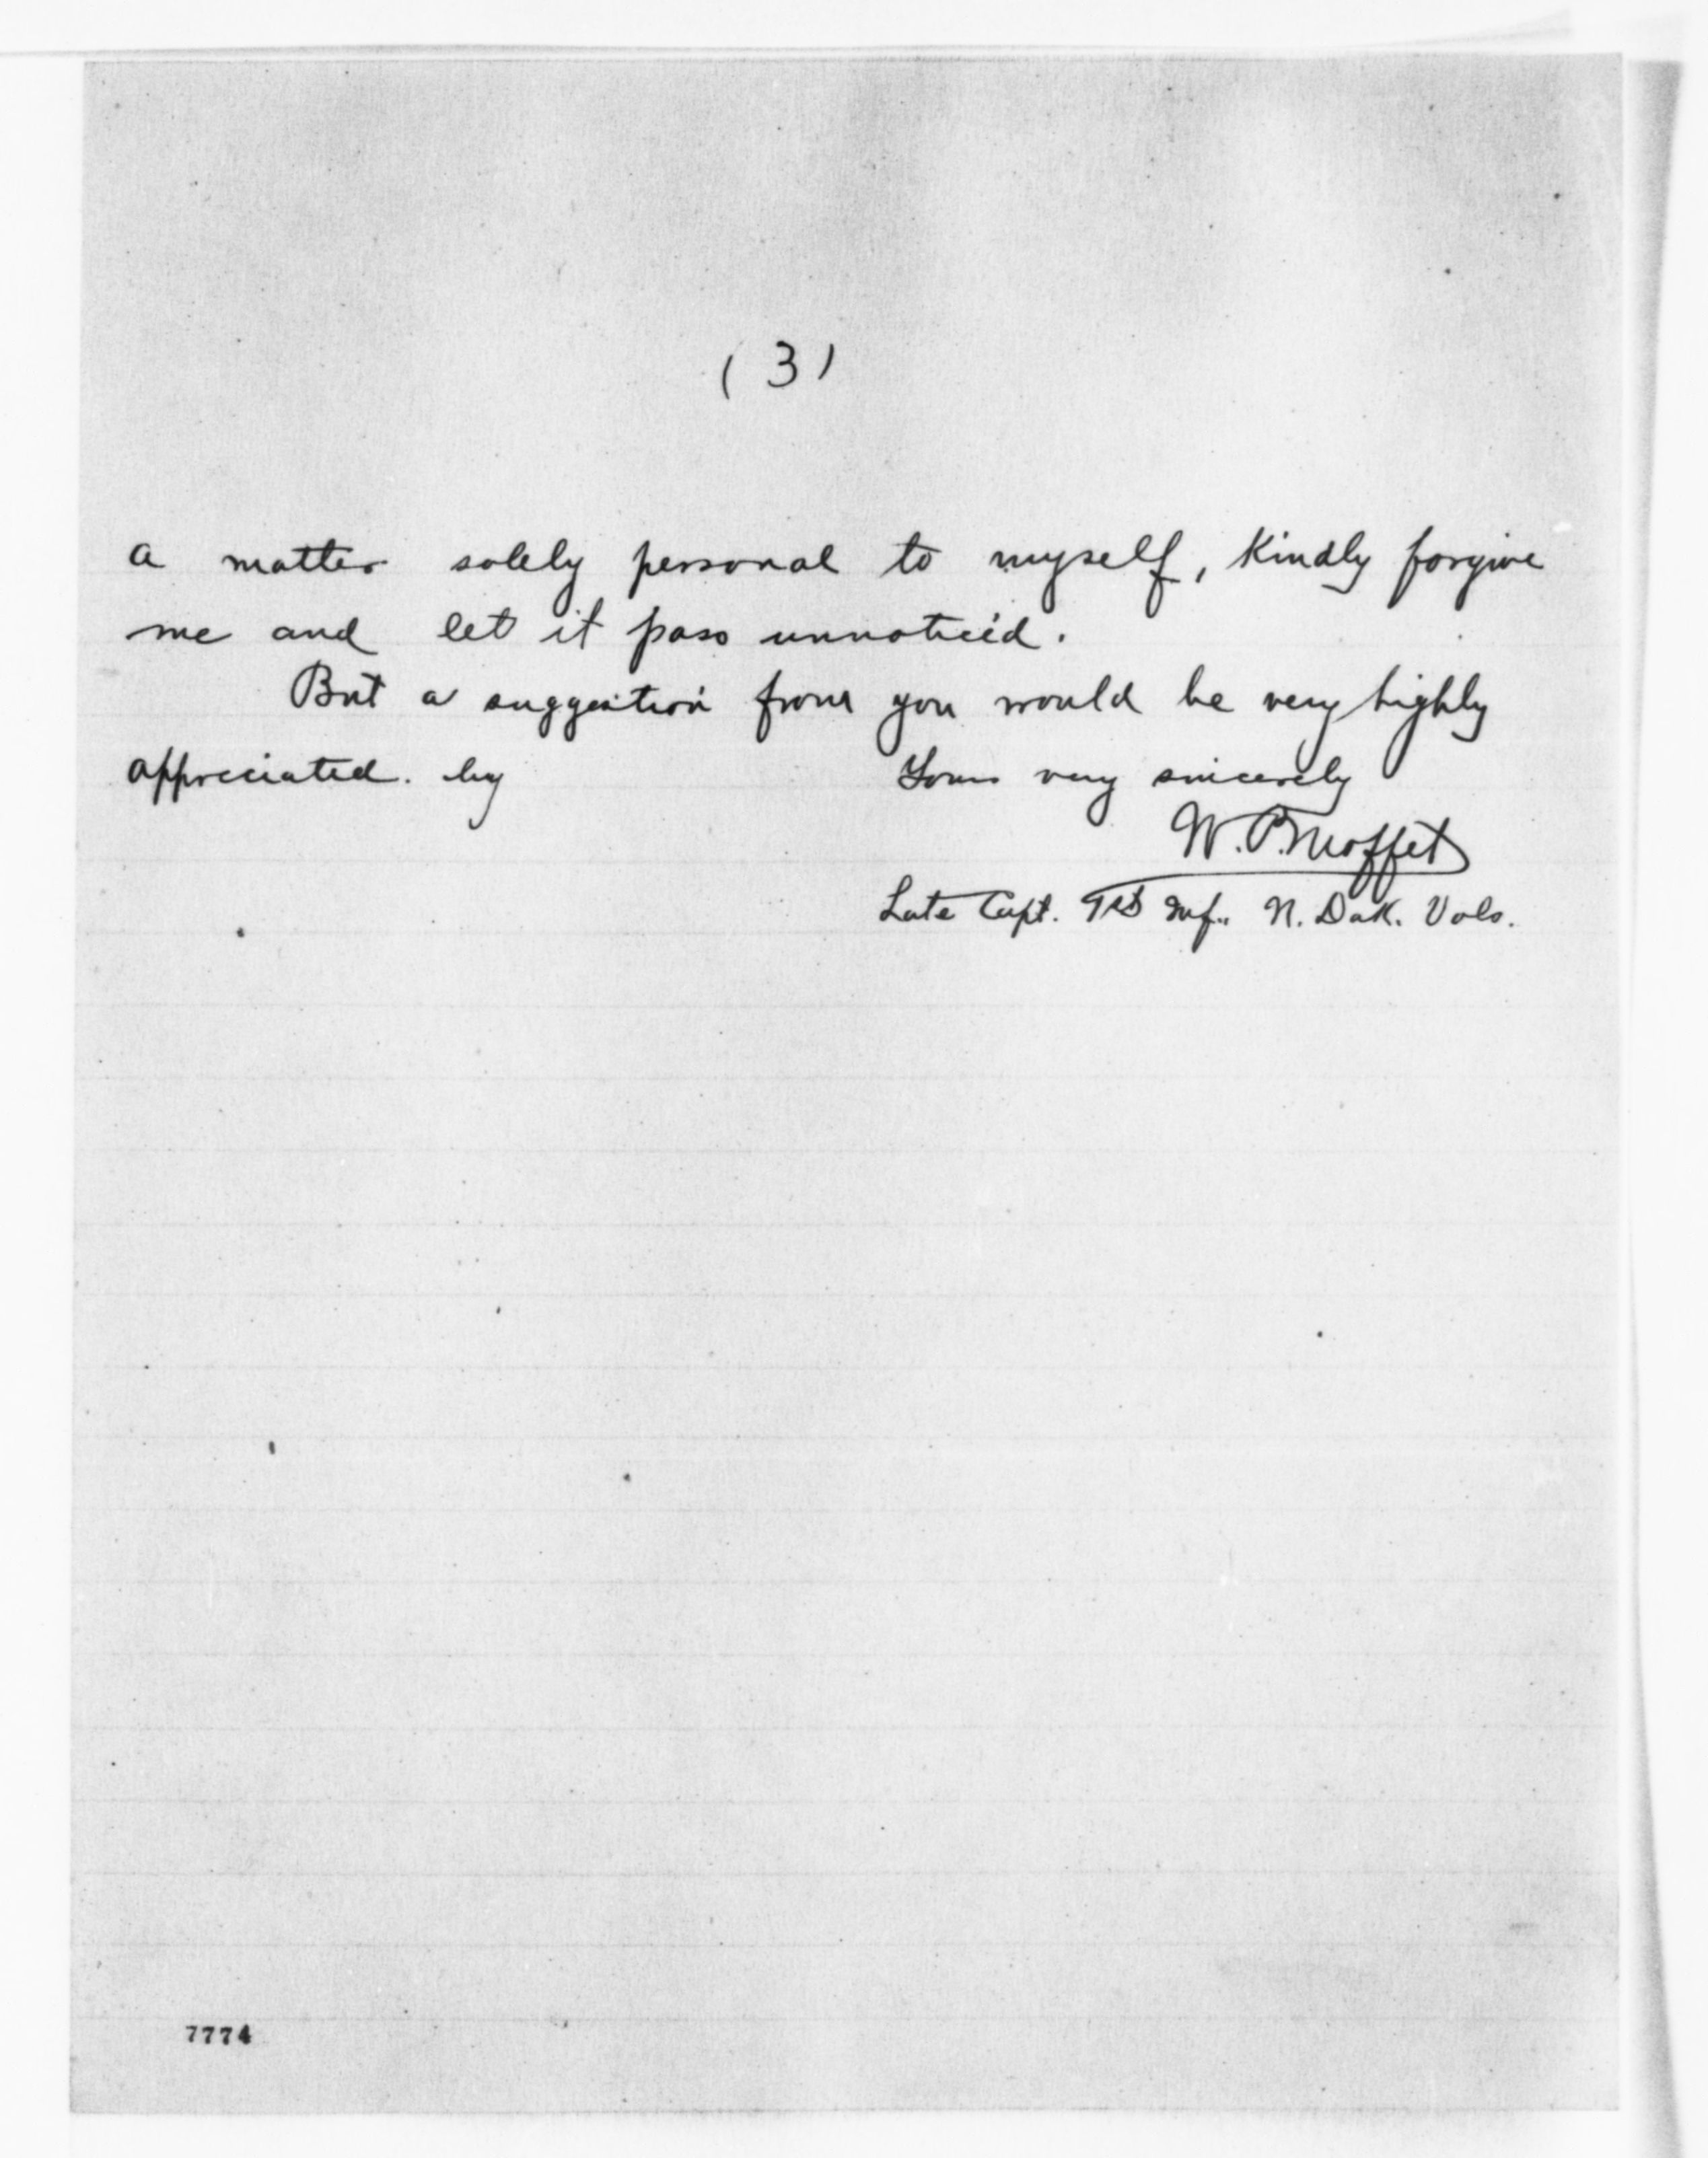 (3)
a matter solely personal to myself, Kindly forgive
me and let it pass unnoticed.
But a suggestion from you would be very highly
appreciated. by Yours very sincerely
W. P. Moffet
Late Capt. Inf. N. Dak. Vols.
7774